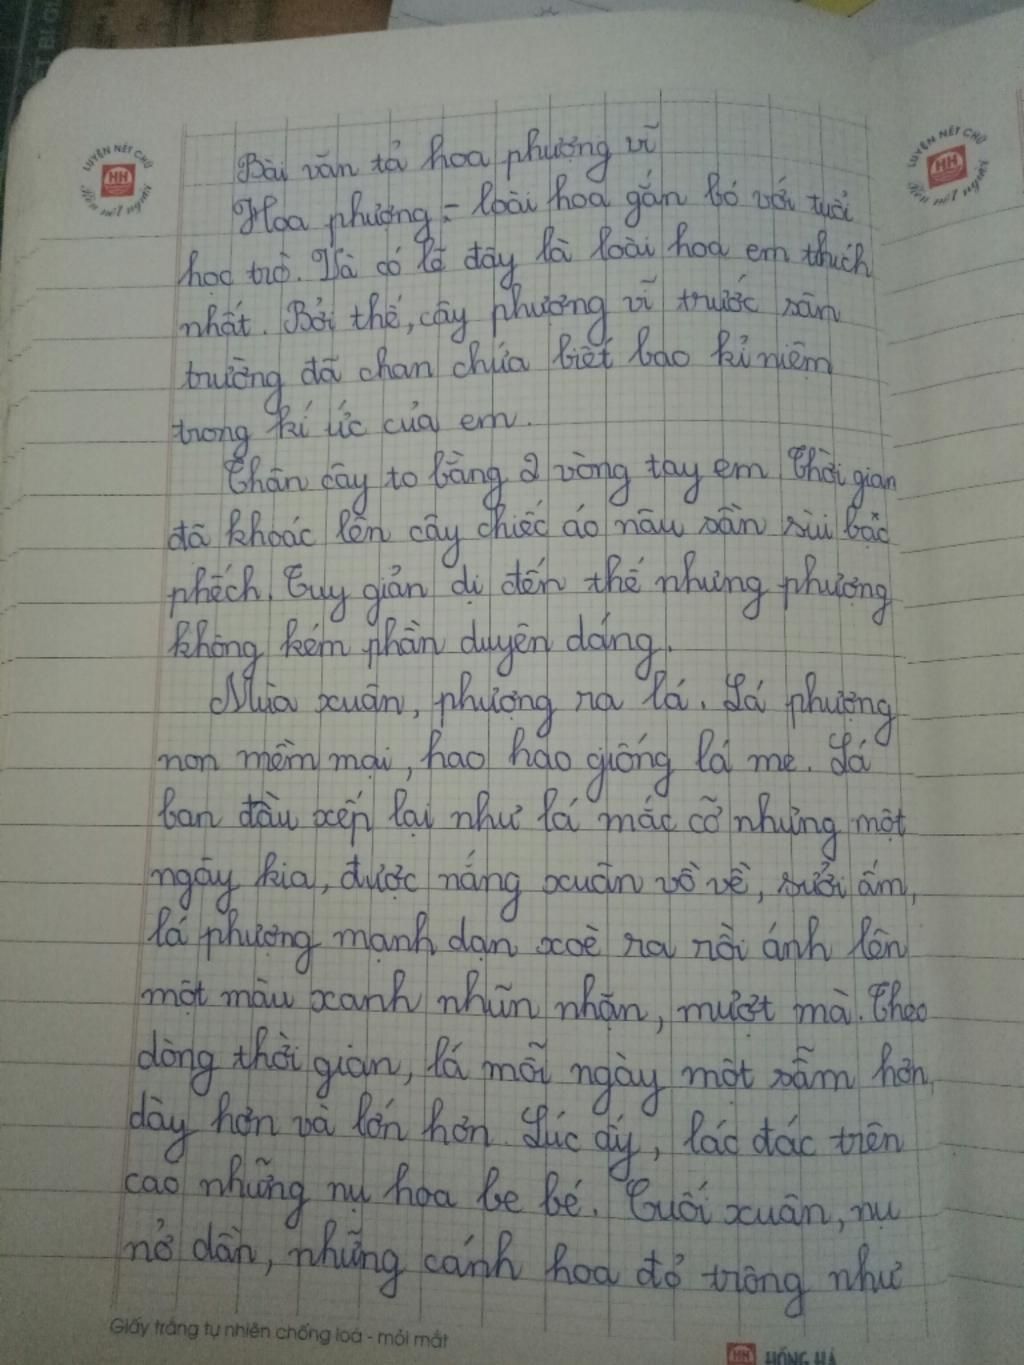 LUYỆN NÉT CHỮ
HH
Rèn nết người
LUYỆN NÉT CHỮ
HH
Rèn nết người
Bài văn tả hoa phượng vĩ
Hoa phượng - loài hoa gắn bó với tuổi
học trò. Và có lẽ đây là loài hoa em thích
nhất. Bởi thế, cây phượng vĩ trước sân
trường đã chan chứa biết bao kỉ niệm
trong kí ức của em.
Thân cây to bằng 2 vòng tay em. Thời gian
đã khoác lên cây chiếc áo nâu sần sùi bạc
phếch. Tuy giản dị đến thế nhưng phượng
không kém phần duyên dáng.
Mùa xuân, phượng ra lá. Lá phượng
non mềm mại, hao hao giống lá me. Lá
ban đầu xếp lại như lá mắc cỡ nhưng một
ngày kia, được nắng xuân vỗ về, sưởi ấm,
lá phượng mạnh dạn xoè ra rồi ánh lên
một màu xanh nhũn nhặn, mượt mà. Theo
dòng thời gian, lá mỗi ngày một sẫm hơn,
dày hơn và lớn hơn. Lúc ấy, lác đác trên
cao những nụ hoa be bé. Cuối xuân, nụ
nở dần, những cánh hoa đỏ trông như
Giấy trắng tự nhiên chống loá - mỏi mắt
HH HỒNG HÀ